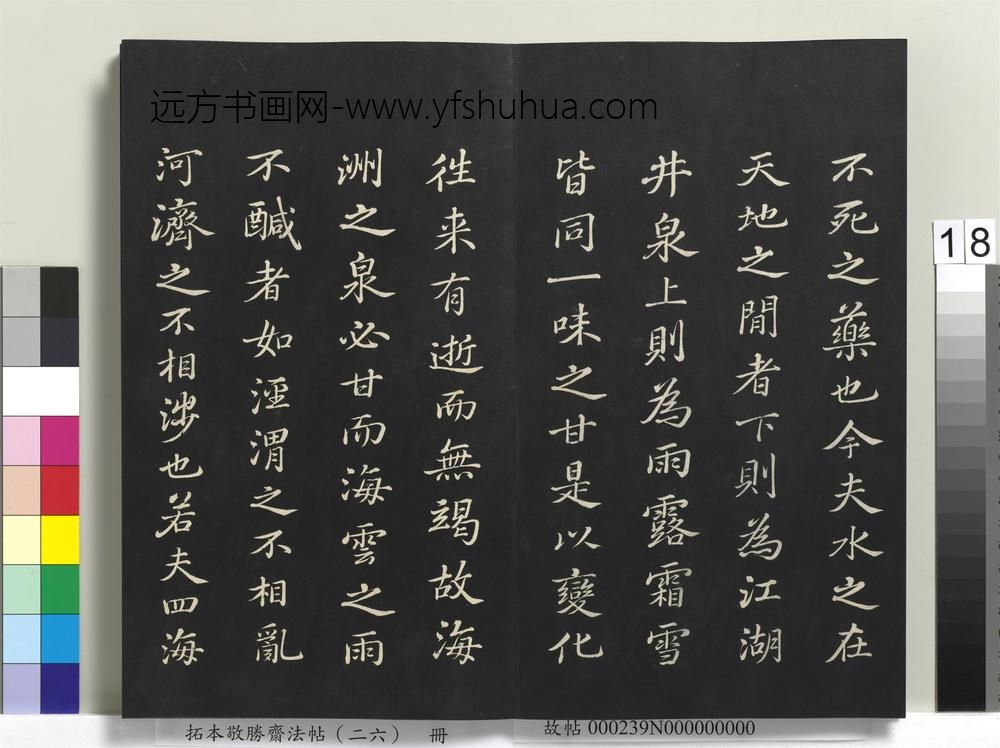 远方书画网-www.yfshuhua.com
不死之藥也今夫水之在
天地之閒者下則為江湖
井泉上則為雨露霜雪
皆同一味之甘是以變化
徃来有逝而無竭故海
洲之泉必甘而海雲之雨
不醎者如涇渭之不相亂
河濟之不相涉也若夫四海
18
拓本敬勝齋法帖（二六） 冊
故帖 000239N000000000